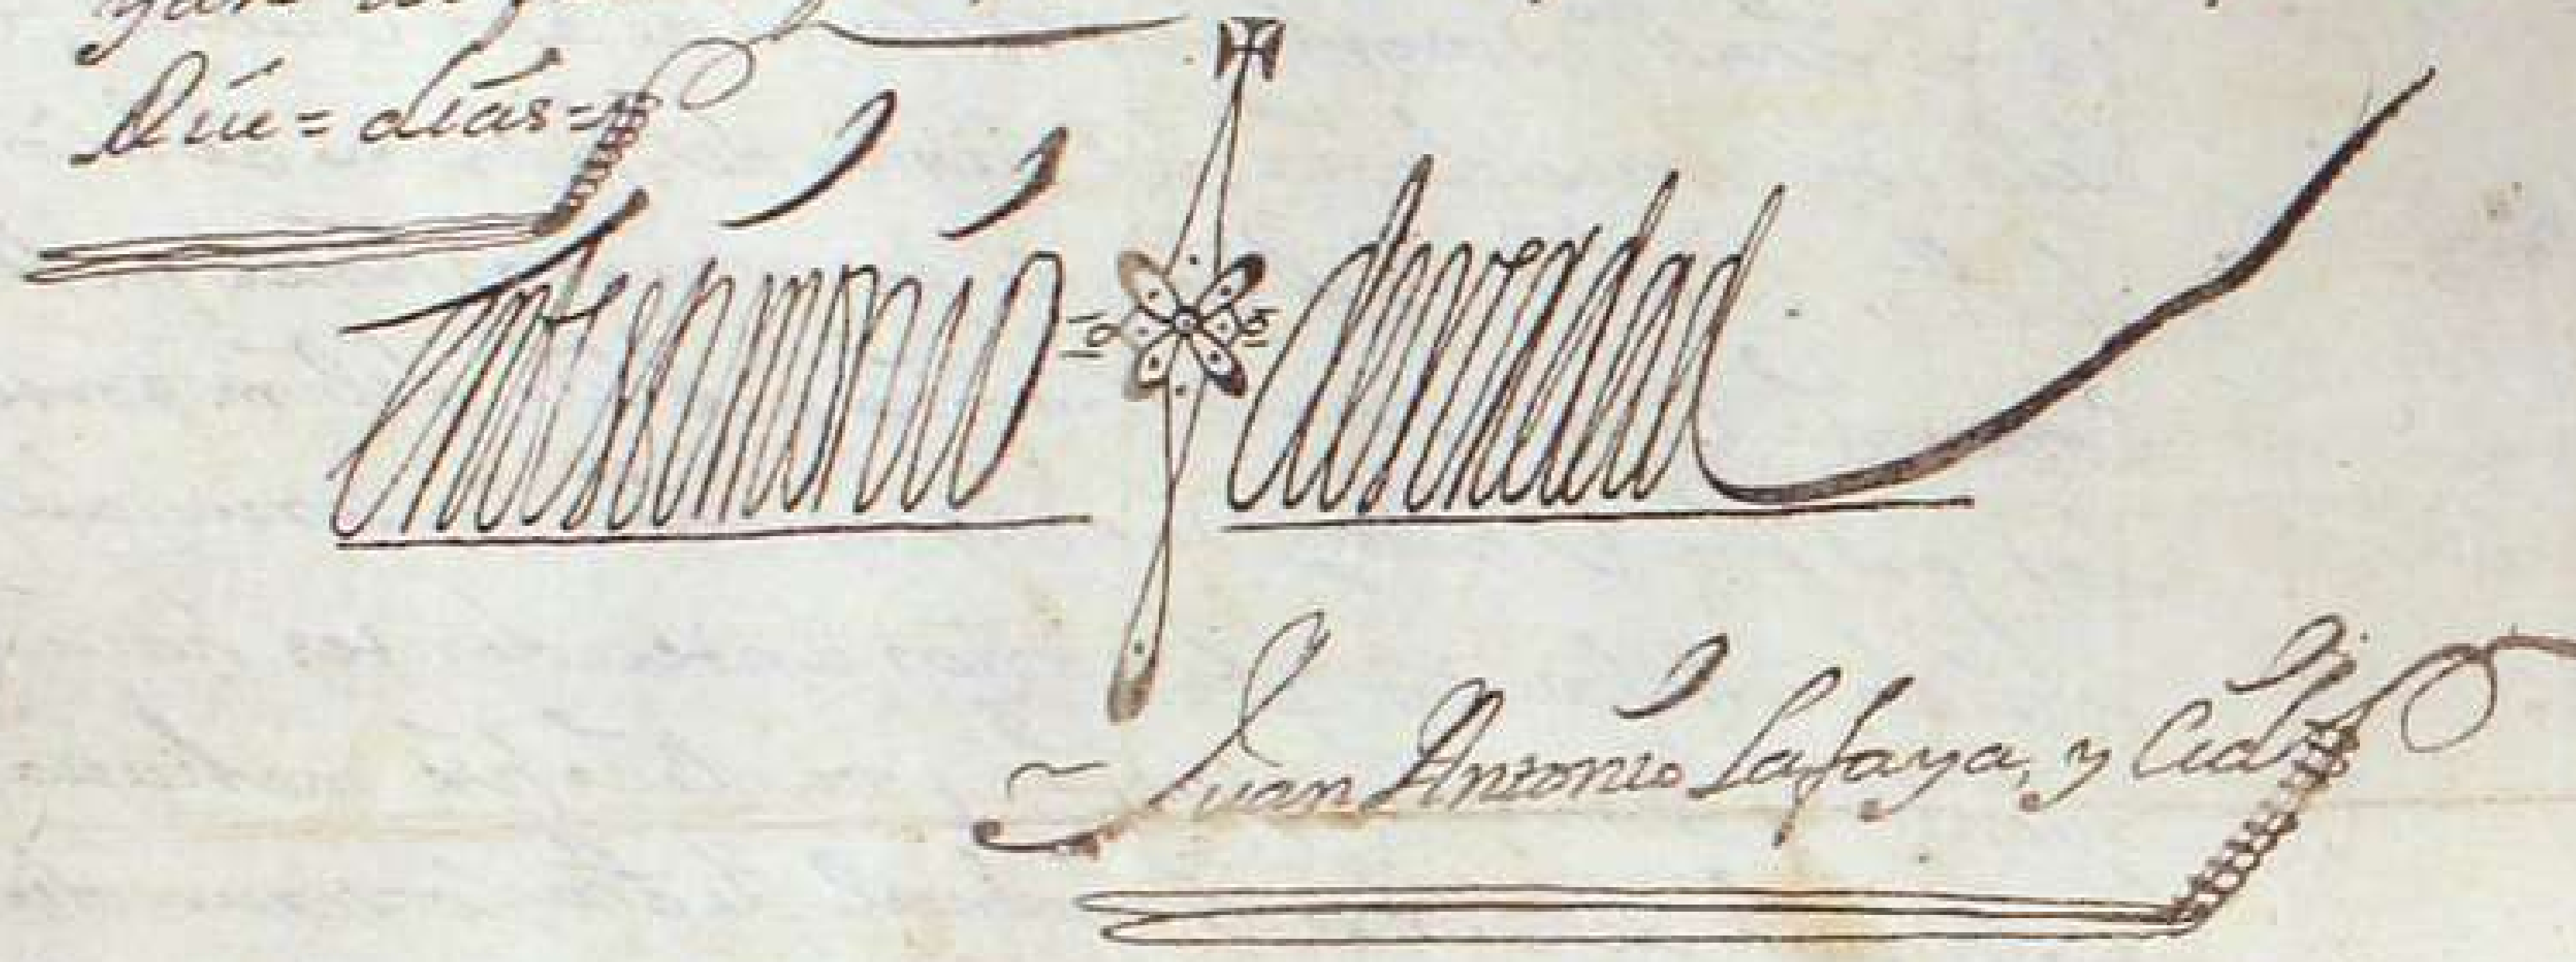 Que = días =
En testimonio de verdad
Juan Antonio Lafaya, y Cid